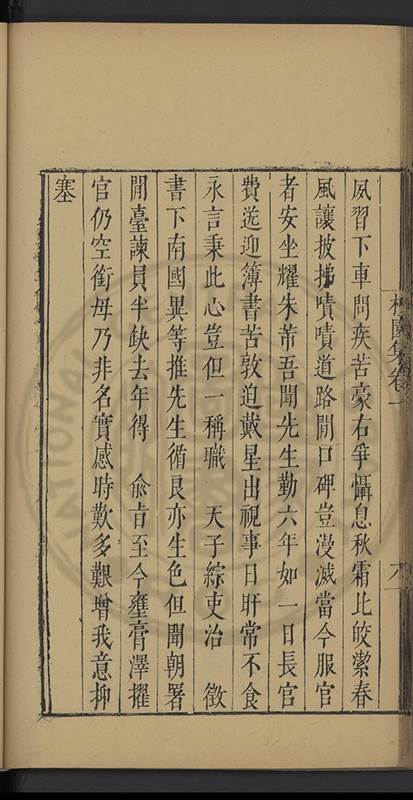 夙習下車問疾苦豪右爭懾息秋霜比皎潔春
風讓披拂嘖嘖道路閒口碑豈漫滅當今服官
者安坐耀朱芾吾聞先生勤六年如一日長官
費送迎簿書苦敦迫戴星出視事日旰常不食
永言秉此心豈但一稱職 天子綜吏治 徵
書下南國異等推先生循良亦生色但聞朝署
閒臺諫員半缺去年得 兪旨至今壅膏澤擢
官仍空銜毋乃非名實感時歎多艱增我意抑
塞
集卷一